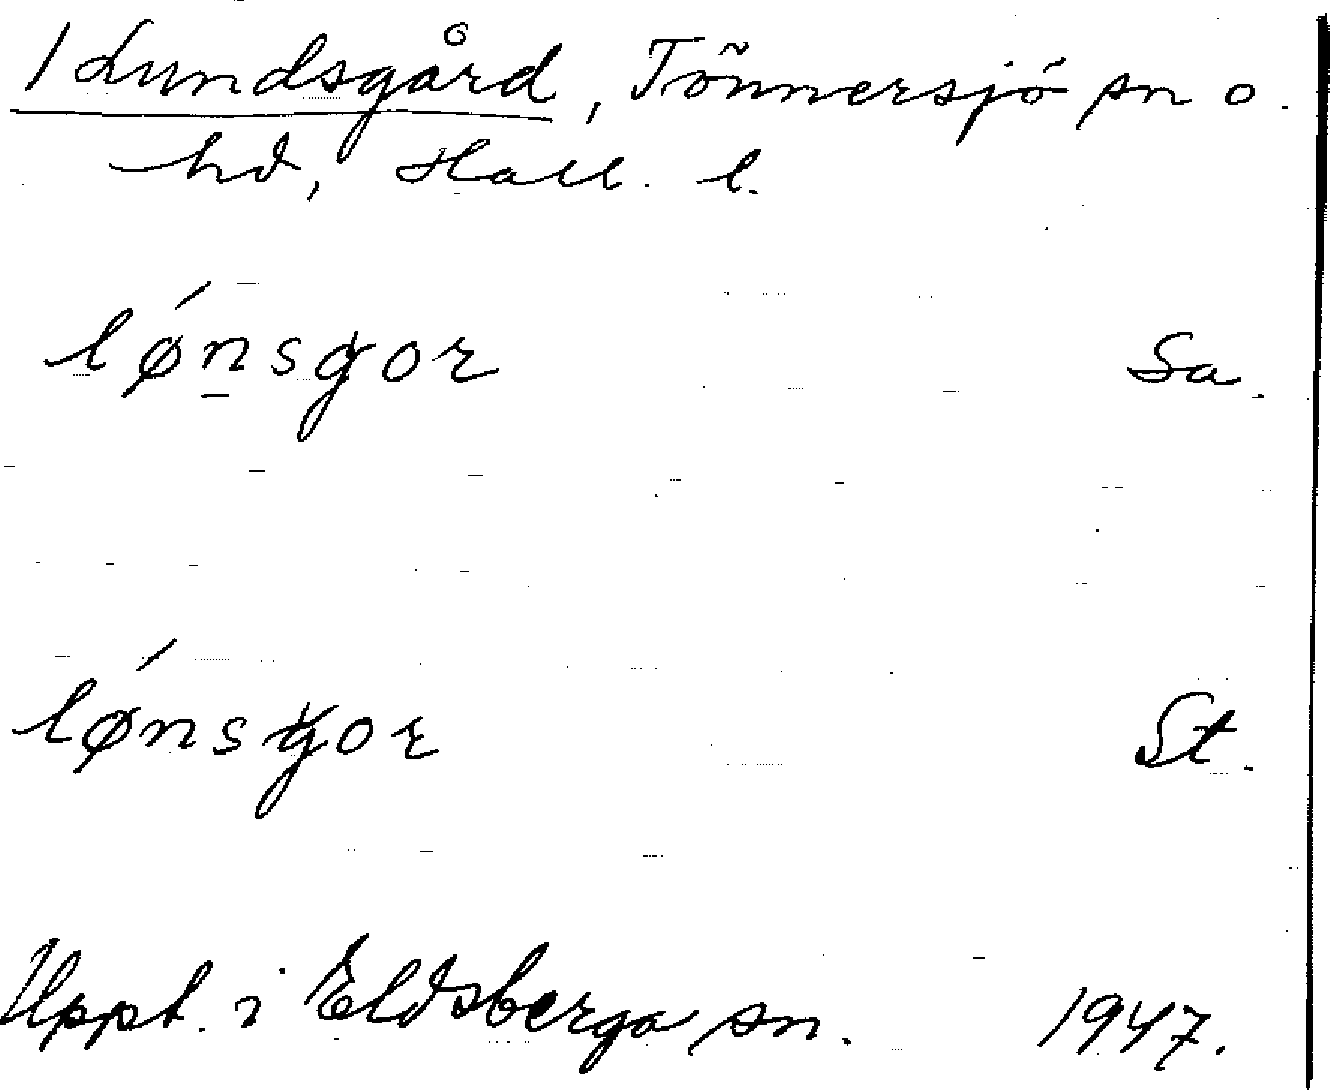 1 Lundsgård, Tönnersjö sn o.
hd, Hall. l.
lǿn̲sgor Sa.
lǿnsgor St.
Uppt. i Eldsberga sn. 1947.